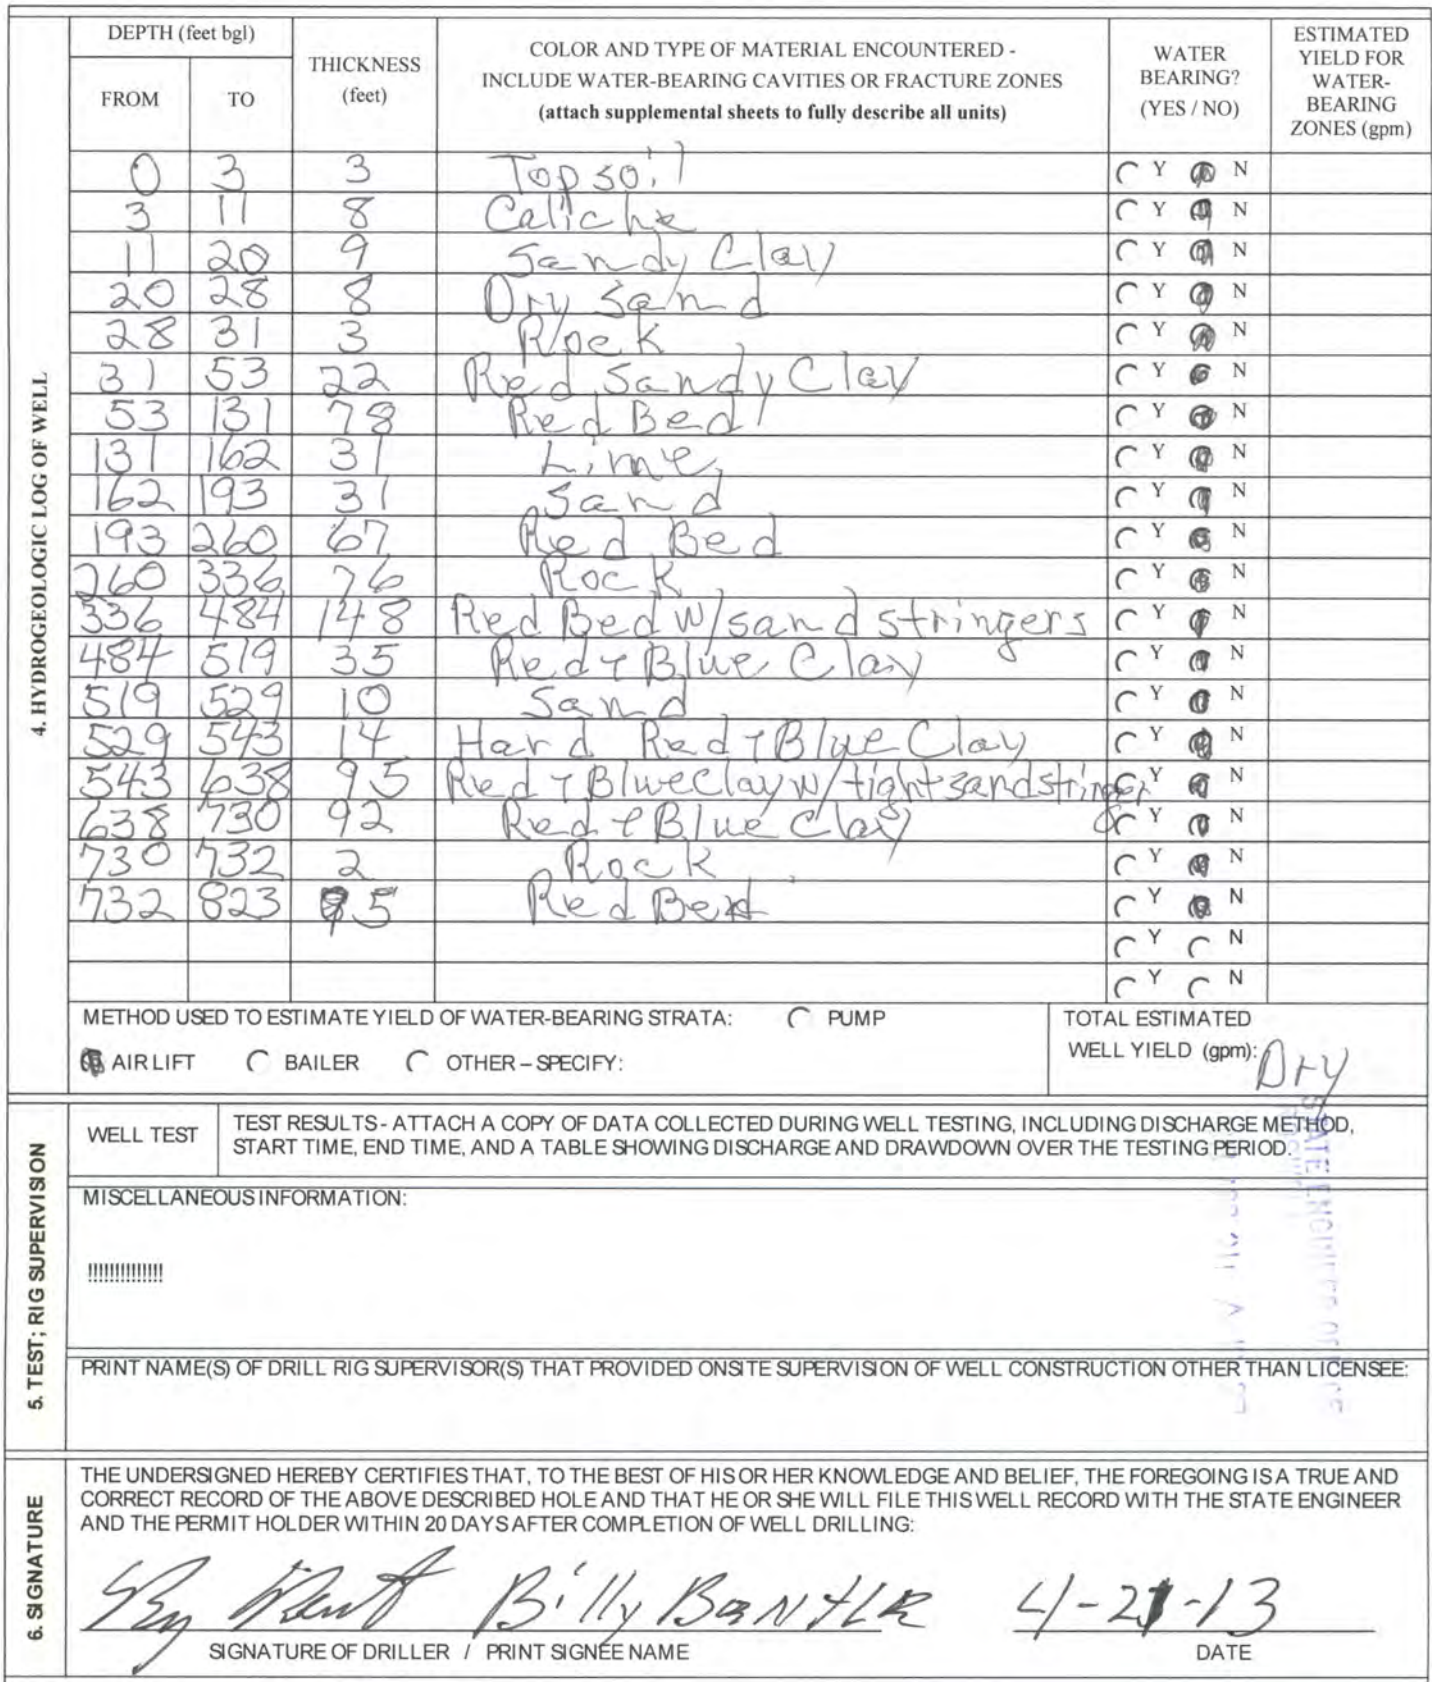 4. HYDROGEOLOGIC LOG OF WELL
DEPTH (feet bgl)
FROM TO
THICKNESS (feet)
COLOR AND TYPE OF MATERIAL ENCOUNTERED -
INCLUDE WATER-BEARING CAVITIES OR FRACTURE ZONES
(attach supplemental sheets to fully describe all units)
WATER BEARING? (YES / NO)
ESTIMATED YIELD FOR WATER-BEARING ZONES (gpm)
0 3 3 Topsoil Y N
3 11 8 Caliche Y N
11 20 9 Sandy Clay Y N
20 28 8 Dry Sand Y N
28 31 3 Rock Y N
31 53 22 Red Sandy Clay Y N
53 131 78 Red Bed Y N
131 162 31 Lime Y N
162 193 31 Sand Y N
193 260 67 Red Bed Y N
260 336 76 Rock Y N
336 484 148 Red Bed w/sand stringers Y N
484 519 35 Red + Blue Clay Y N
519 529 10 Sand Y N
529 543 14 Hard Red + Blue Clay Y N
543 638 95 Red + Blue Clay w/tight sand stringers Y N
638 730 92 Red + Blue Clay Y N
730 732 2 Rock Y N
732 823 Red Bed Y N
Y N
Y N
METHOD USED TO ESTIMATE YIELD OF WATER-BEARING STRATA: PUMP
AIR LIFT BAILER OTHER – SPECIFY:
TOTAL ESTIMATED
WELL YIELD (gpm): Dry
5. TEST; RIG SUPERVISION
WELL TEST
TEST RESULTS - ATTACH A COPY OF DATA COLLECTED DURING WELL TESTING, INCLUDING DISCHARGE METHOD,
START TIME, END TIME, AND A TABLE SHOWING DISCHARGE AND DRAWDOWN OVER THE TESTING PERIOD.
MISCELLANEOUS INFORMATION:
!!!!!!!!!!!!!!!
PRINT NAME(S) OF DRILL RIG SUPERVISOR(S) THAT PROVIDED ONSITE SUPERVISION OF WELL CONSTRUCTION OTHER THAN LICENSEE:
6. SIGNATURE
THE UNDERSIGNED HEREBY CERTIFIES THAT, TO THE BEST OF HIS OR HER KNOWLEDGE AND BELIEF, THE FOREGOING IS A TRUE AND
CORRECT RECORD OF THE ABOVE DESCRIBED HOLE AND THAT HE OR SHE WILL FILE THIS WELL RECORD WITH THE STATE ENGINEER
AND THE PERMIT HOLDER WITHIN 20 DAYS AFTER COMPLETION OF WELL DRILLING:
Billy 4-21-13
SIGNATURE OF DRILLER / PRINT SIGNEE NAME DATE